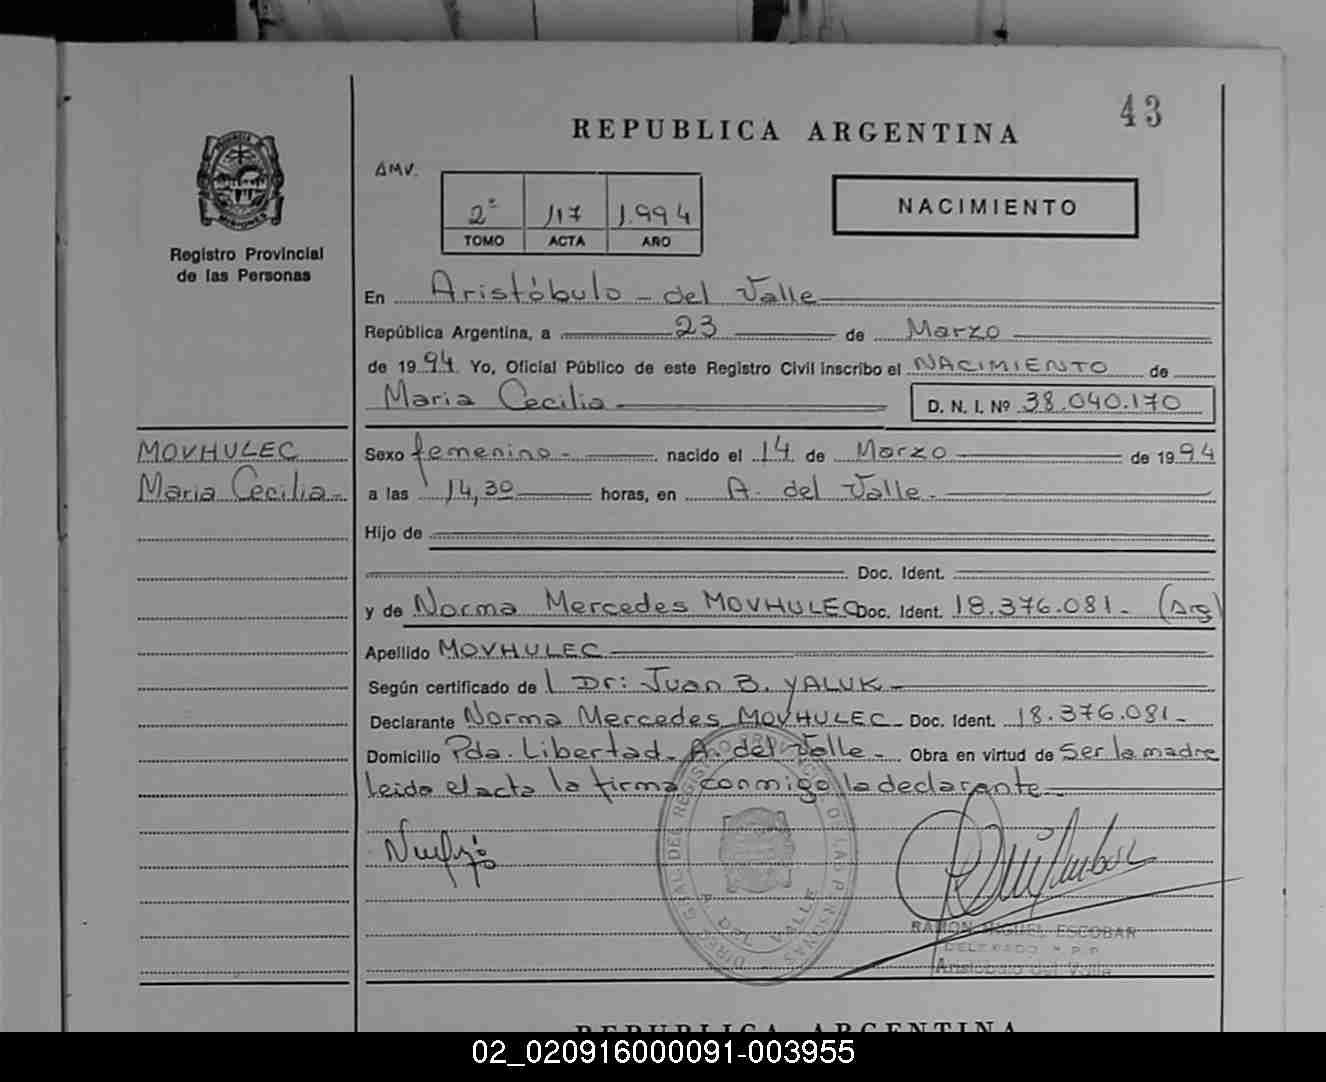 43
REPUBLICA ARGENTINA
AMV.
2º 117 1.994
TOMO ACTA AÑO
NACIMIENTO
Registro Provincial
de las Personas
En Aristóbulo - del Valle
República Argentina, a 23 de Marzo
de 1994 Yo, Oficial Público de este Registro Civil inscribo el NACIMIENTO de
Maria Cecilia D. N. I. Nº 38.040.170
MOVHULEC
Maria Cecilia -
Sexo femenino - nacido el 14 de Marzo de 1994
a las 14,30 horas, en A. del Valle -
Hijo de
Doc. Ident.
y de Norma Mercedes MOVHULEC Doc. Ident. 18.376.081 - (Arg)
Apellido MOVHULEC
Según certificado de l Dr: Juan B. YALUK -
Declarante Norma Mercedes MOVHULEC - Doc. Ident. 18.376.081 -
Domicilio Pda. Libertad - A. del Valle - Obra en virtud de Ser la madre
leida el acta la firma conmigo la declarante -
A. DEL VALLE
RAMON MIGUEL ESCOBAR
DELEGADO R.P.P.
Aristobulo del Valle
REPUBLICA ARGENTINA
02_020916000091-003955